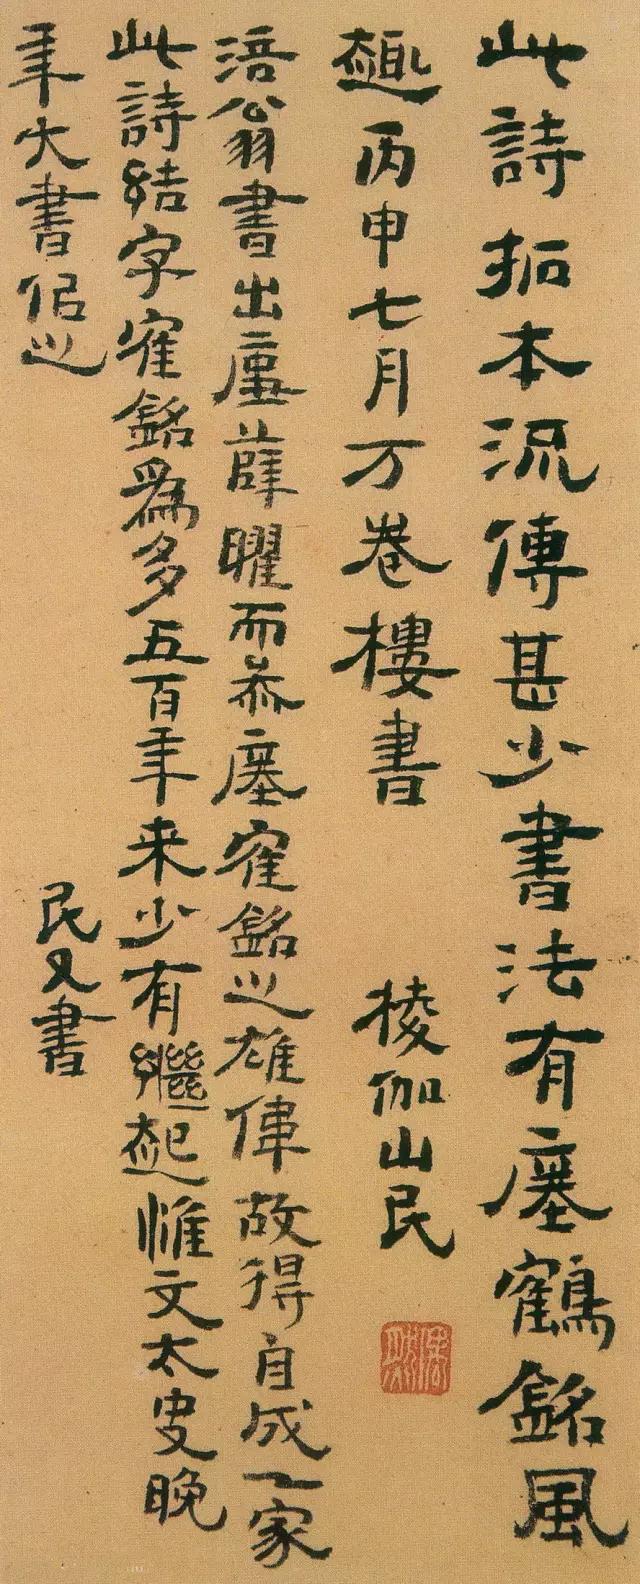 此詩拓本流傳甚少書法有瘞鶴銘風
趣丙申七月万卷樓書
楞伽山民
涪翁書出㢆薛曜而叅瘞隺銘之雄偉故得自成一家
此詩結字隺銘為多五百年来少有繼起惟文太史晚
年大書佀之
民又書